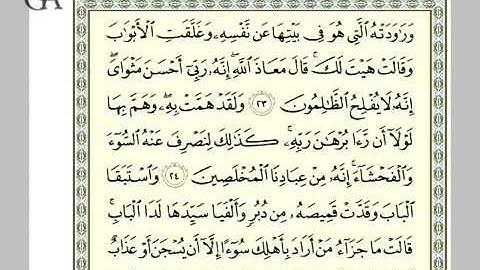 GA
وَرَٰوَدَتْهُ ٱلَّتِى هُوَ فِى بَيْتِهَا عَن نَّفْسِهِۦ وَغَلَّقَتِ ٱلْأَبْوَٰبَ
وَقَالَتْ هَيْتَ لَكَ ۚ قَالَ مَعَاذَ ٱللَّهِ ۖ إِنَّهُۥ رَبِّىٓ أَحْسَنَ مَثْوَاىَ ۖ
إِنَّهُۥ لَا يُفْلِحُ ٱلظَّـٰلِمُونَ ٢٣ وَلَقَدْ هَمَّتْ بِهِۦ ۖ وَهَمَّ بِهَا
لَوْلَآ أَن رَّءَا بُرْهَـٰنَ رَبِّهِۦ ۚ كَذَٰلِكَ لِنَصْرِفَ عَنْهُ ٱلسُّوٓءَ
وَٱلْفَحْشَآءَ ۚ إِنَّهُۥ مِنْ عِبَادِنَا ٱلْمُخْلَصِينَ ٢٤ وَٱسْتَبَقَا
ٱلْبَابَ وَقَدَّتْ قَمِيصَهُۥ مِن دُبُرٍ وَأَلْفَيَا سَيِّدَهَا لَدَا ٱلْبَابِ ۚ
قَالَتْ مَا جَزَآءُ مَنْ أَرَادَ بِأَهْلِكَ سُوٓءًا إِلَّآ أَن يُسْجَنَ أَوْ عَذَابٌ